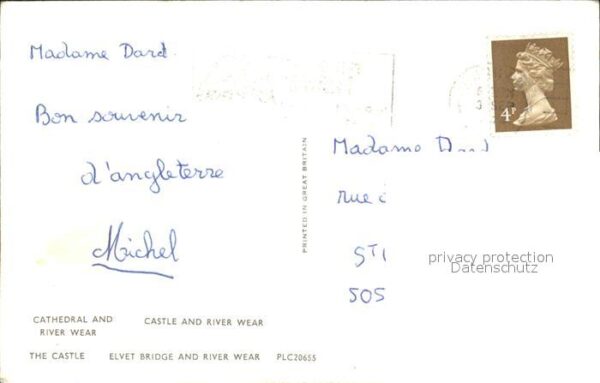 Madame Dard
Bon souvenir
d'angleterre
Michel
PRINTED IN GREAT BRITAIN
4P
Madame
rue
505
privacy protection
Datenschutz
CATHEDRAL AND
RIVER WEAR
CASTLE AND RIVER WEAR
THE CASTLE
ELVET BRIDGE AND RIVER WEAR
PLC20655